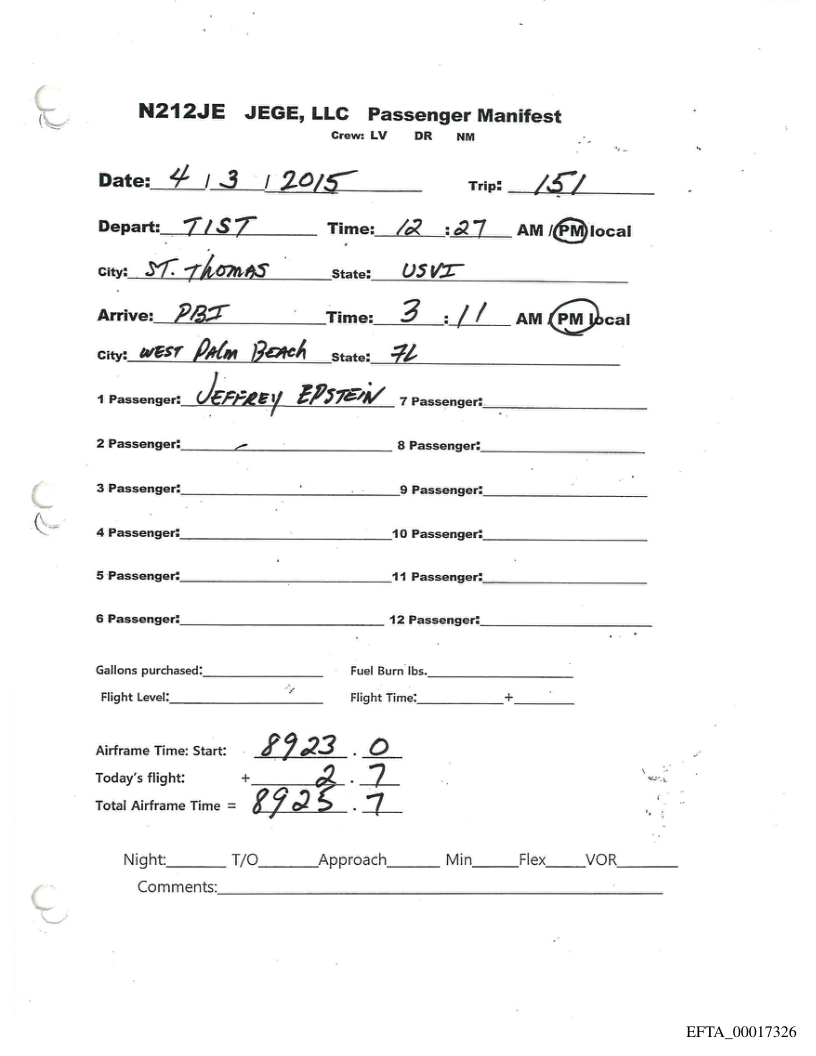 N212JE JEGE, LLC Passenger Manifest
Crew: LV DR NM
Date: 4 / 3 / 2015 Trip: 151
Depart: TIST Time: 12 : 27 AM / PM local
City: ST. THOMAS State: USVI
Arrive: PBI Time: 3 : 11 AM / PM local
City: WEST PALM BEACH State: FL
1 Passenger: JEFFREY EPSTEIN 7 Passenger:
2 Passenger: 8 Passenger:
3 Passenger: 9 Passenger:
4 Passenger: 10 Passenger:
5 Passenger: 11 Passenger:
6 Passenger: 12 Passenger:
Gallons purchased: Fuel Burn lbs.
Flight Level: Flight Time: +
Airframe Time: Start: 8923 . 0
Today's flight: + 2 . 7
Total Airframe Time = 8925 . 7
Night: T/O Approach Min Flex VOR
Comments:
EFTA_00017326